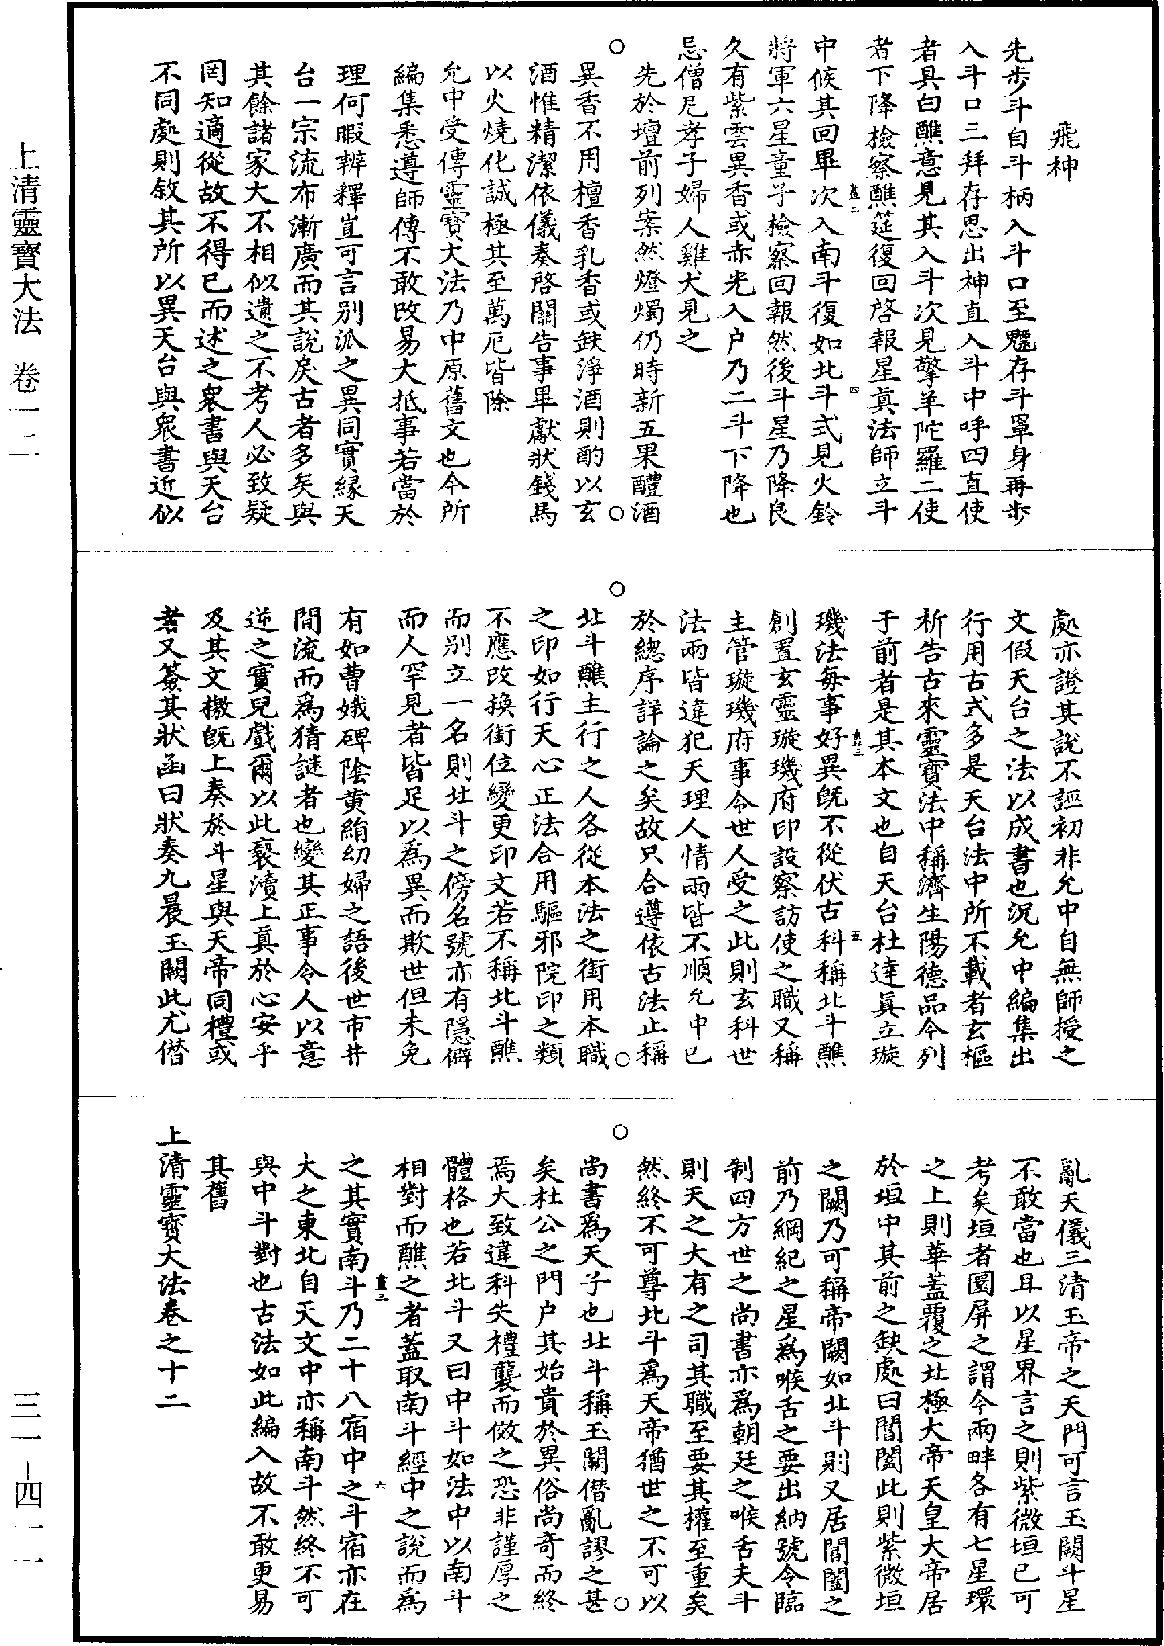 上清靈寶大法 卷一二
三一-四一一
飛神
先步斗自斗柄入斗口至魒存斗罩身再步
入斗口三拜存思出神直入斗中呼四直使
者具白醮意見其入斗次見擎羊陀羅二使
者下降檢察醮筵復回啓報星真法師立斗
中候其回畢次入南斗復如北斗式見火鈴
將軍六星童子檢察回報然後斗星乃降良
久有紫雲異香或赤光入户乃二斗下降也
忌僧尼孝子婦人雞犬見之
先於壇前列案然燈燭仍時新五果醴酒
異香不用檀香乳香或缺淨酒則酌以玄
酒惟精潔依儀奏啓關告事畢獻狀錢馬
以火燒化誠極其至萬厄皆除
允中受傳靈寶大法乃中原舊文也今所
編集悉遵師傳不敢改易大抵事若當於
理何暇辨釋豈可言别派之異同實緣天
台一宗流布漸廣而其説戾古者多矣與
其餘諸家大不相似遺之不考人必致疑
罔知適從故不得已而述之衆書與天台
不同處則叙其所以異天台與衆書近似
處亦證其説不誣初非允中自無師授之
文假天台之法以成書也况允中編集出
行用古式多是天台法中所不載者玄樞
祈告古來靈寶法中稱濟生陽德品今列
于前者是其本文也自天台杜達真立璇
璣法每事好異旣不從伏古科稱北斗醮
創置玄靈璇璣府印設察訪使之職又稱
主管璇璣府事令世人受之此則玄科世
法兩皆違犯天理人情兩皆不順允中已
於總序詳論之矣故只合遵依古法止稱
北斗醮主行之人各從本法之銜用本職
之印如行天心正法合用驅邪院印之類
不應改换銜位變更印文若不稱北斗醮
而别立一名則北斗之傍名號亦有隱僻
而人罕見者皆足以爲異而欺世但未免
有如曹娥碑陰黄絹幼婦之語後世市井
間流而爲猜謎者也變其正事令人以意
逆之實兒戲爾以此褻瀆上真於心安乎
及其文檄旣上奏於斗星與天帝同禮或
者又簽其狀函曰狀奏九晨玉闕此尤僭
亂天儀三清玉帝之天門可言玉闕斗星
不敢當也且以星界言之則紫微垣已可
考矣垣者圜屏之謂今兩畔各有七星環
之上則華蓋覆之北極大帝天皇大帝居
於垣中其前之缺處曰閶闔此則紫微垣
之闕乃可稱帝闕如北斗則又居閶闔之
前乃綱紀之星爲喉舌之要出納號令臨
制四方世之尚書亦爲朝廷之喉舌夫斗
則天之大有之司其職至要其權至重矣
然終不可尊北斗爲天帝猶世之不可以
尚書爲天子也北斗稱玉闕僭亂謬之甚
矣杜公之門户其始貴於異俗尚奇而終
焉大致違科失禮襲而倣之恐非謹厚之
體格也若北斗又曰中斗如法中以南斗
相對而醮之者蓋取南斗經中之説而爲
之其實南斗乃二十八宿中之斗宿亦在
大之東北自天文中亦稱南斗然終不可
與中斗對也古法如此編入故不敢更易
其舊
上清靈寶大法卷之十二